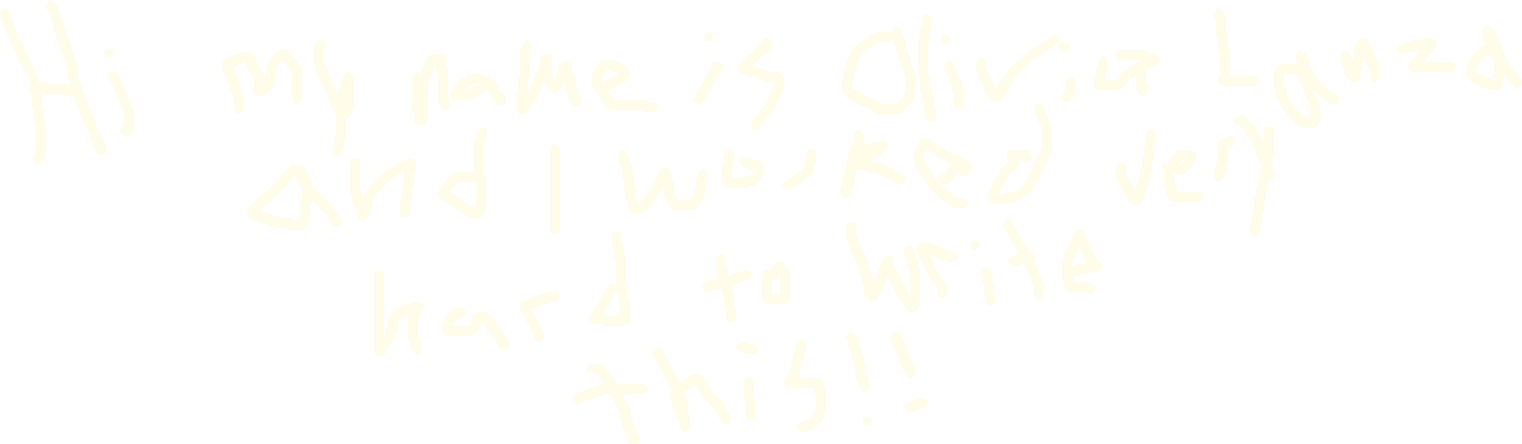 Hi my name is Olivia Lanza
and I worked very
hard to write
this!!